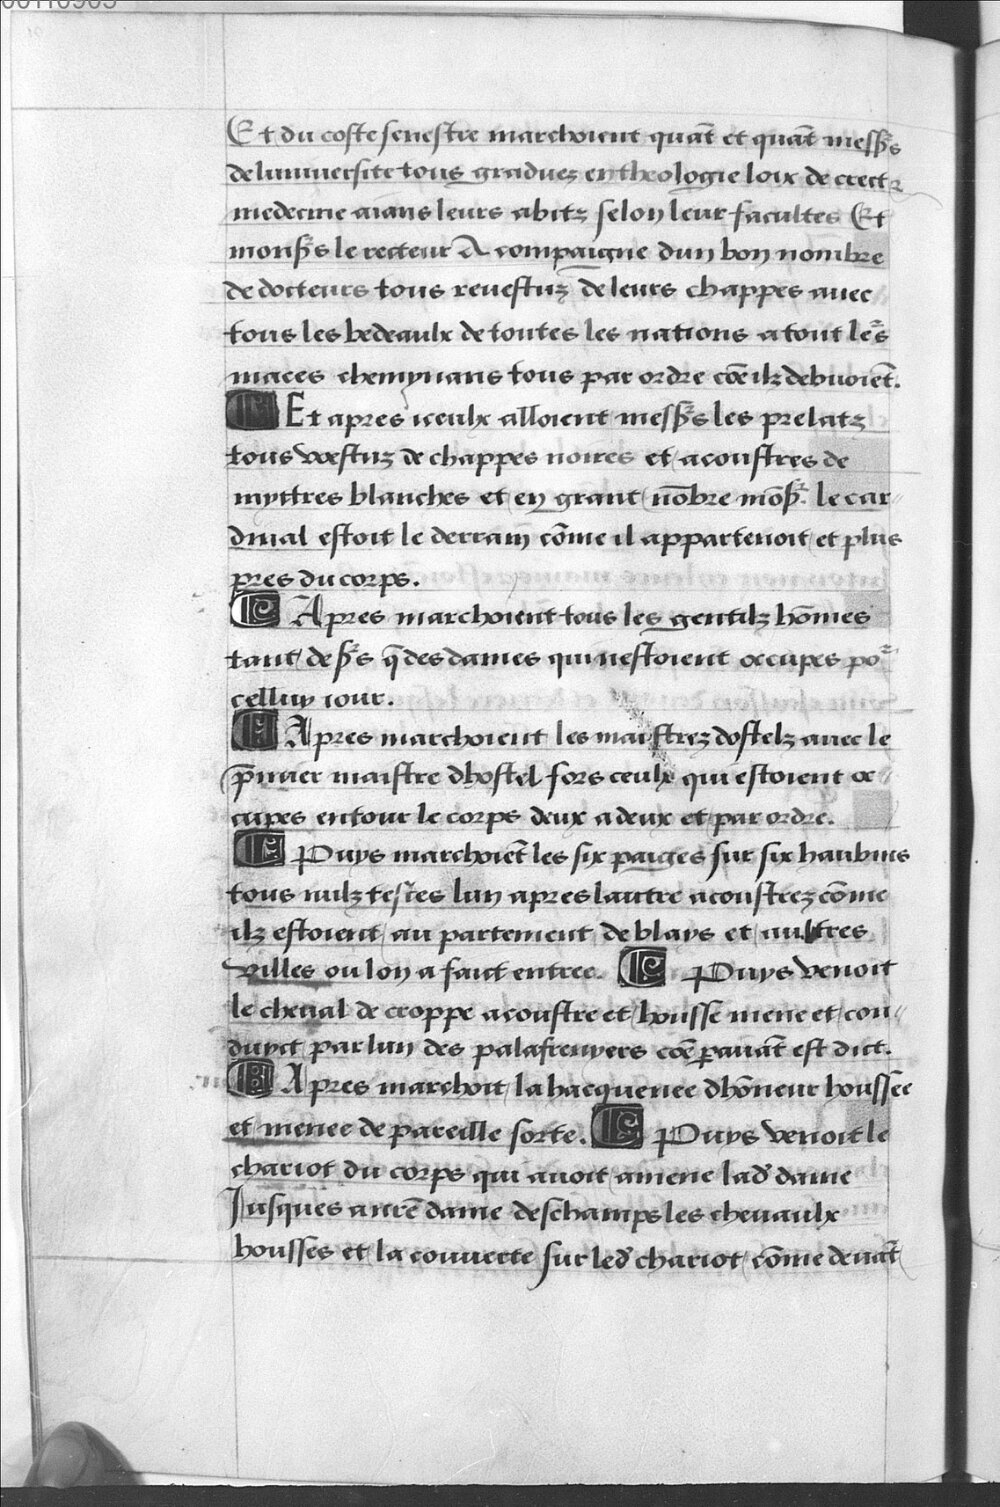 Et du coste senestre marchoient quāt et quāt messrs
de luniuersite tous graduez en theologie loix decrect
medecine aians leurs abitz selon leur facultes Et
monsrs le recteur A compaignie dun bon nombre
de docteurs tous reuestuz de leurs chappes auec
tous les bedeaulx de toutes les nations a tout leᵘʳs
maces chemynans tous par ordre cōe ilz debuoiēt.
Et apres iceulx alloient messrs les prelatz
tous vestuz de chappes noires et acoustres de
myttres blanches et en grant nōbre mōsr. le car⸗
dinal estoit le derrain cōme il appartenoit et plus
pres du corps.
Apres marchoient tous les gentilz hōmes
tant de srs q̄ des dames qui nestoient occupes poʳ
celluy iour.
Apres marchoient les maistrez dostelz auec le
p̄mier maistre dhostel fors ceulx qui estoient oc
cupes entour le corps deux a deux et par ordre.
Puys marchoiēt les six paiges sur six haubins
tous nulz testes lun apres lautre acoustrez cōme
ilz estoient au partement de blays et aultres
villes ou lon a faict entree. Puys venoit
le cheual de croppe acoustre et housse mene et con⸗
duyct par lun des palafrenyers cōe p̄auāt est dict.
Apres marchoit la hacquenee dhōneur houssee
et menee de pareille sorte. Puys venoit le
chariot du corps qui auoit amene lad̄ dame
Jusques a nr̄e dame deschamps les cheuaulx
housses et la couuerte sur led̄ chariot cōme deuāt